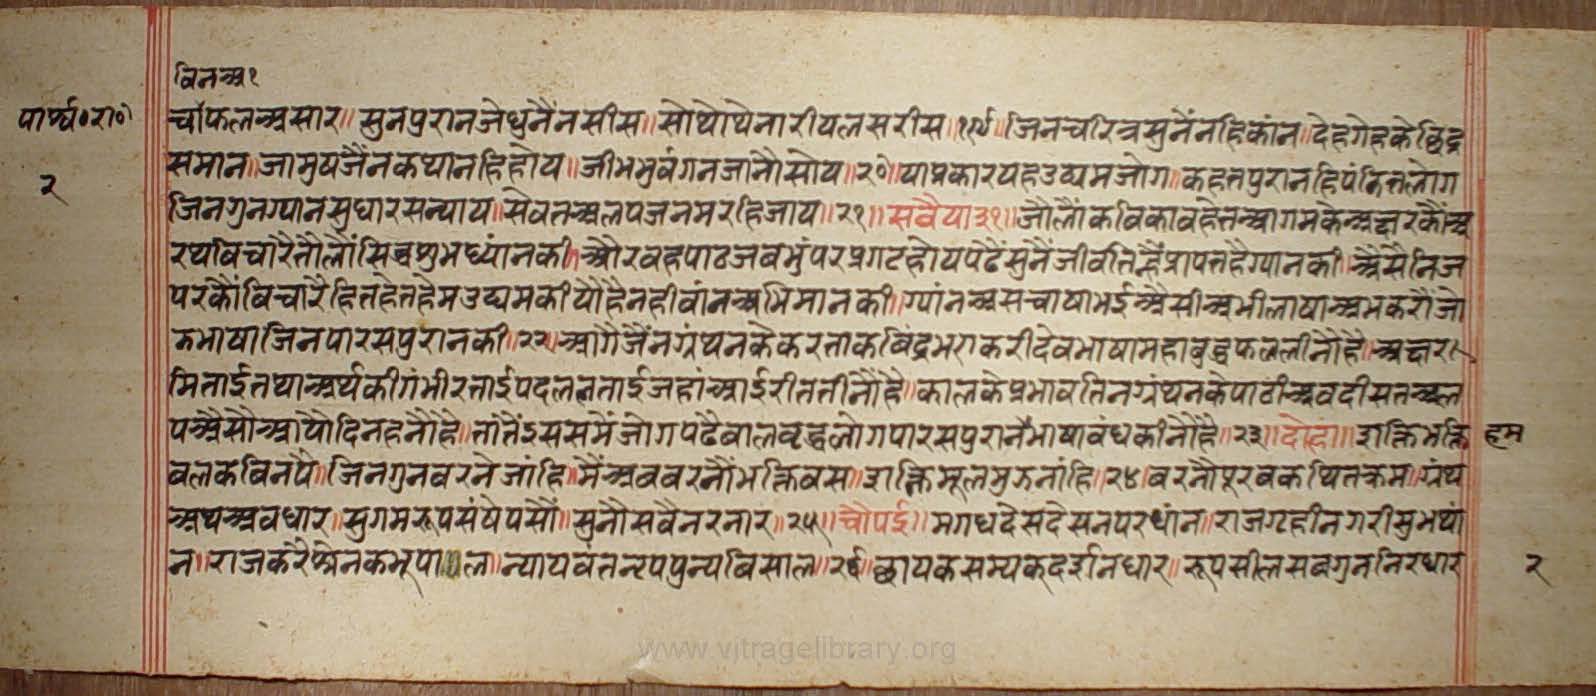 विनअ १
पार्श्व०रा०
र्चाफलअसार॥ सुनपुरानजेधुनैनसीस॥ सोथोथेनारीयलसरीस॥१९॥ जिनचरित्रसुनैनहिकांन॥ देहगेहकेछिद्र
२
समान॥जामुषजैंनकथानहिहोय॥ जीभभुवंगनजानौसोय॥२०॥याप्रकारयहउद्यमजोग॥कहतपुरानहिपंडितलोग
जिनगुनग्यानसुधारसन्याय॥सेवतअलपजनमरहिजाय॥२१॥सवैया३१॥जौलौंकविकाव्यहेतआगमकेअक्षरकौंअ
रथविचारैतौलौंसिद्धशुभध्यांनकी॥औरवहपाठजबभुंपरप्रगटहोयपढैंसुनैंजीवतिन्हैंप्रापतहैग्यानकी॥असैनिज
परकौंविचारैहितहेतहेमउद्यमकीयौहैनहीवांनअभिमानकी॥ग्यांनअसचाषाभईअैसीअभीलाषाअभकरौंजो
रुभाषाजिनपारसपुरानकी॥२२॥आगैजैंनग्रंथनकेकरताकविंद्रभएकरीदेवभाषामहाबुद्धफललीनौहै॥अक्षर
मिताईतथाअर्थकीगंभीरताईपदललताईजहांआईरीततीनौंहै॥कालकेप्रभावतिनग्रंथनकेपाठीअबदीसतअल
पअैसौआयौदिनहनौहै॥तांतैंइससमैंजोगपढैबालवृद्धलोगपारसपुरानभाषाबंधकीनौहै॥२३॥दोहा॥ शक्तिभक्ति हम
बलकविनपै॥जिनगुनवरनेजांहि॥मैंअबवरनौंभक्तिवस॥शक्तिमूलमुझनांहि॥२४॥वरनौपूरवकथितक्रम॥ग्रंथ
अथअवधार॥सुगमरूपसंषेपसौं॥सुनौसवैनरनार॥२५॥चौपई॥मगधदेसदेसनपरधांन॥राजगृहीनगरीसुभथां
न॥राजकरैश्रेनकभूपाल॥न्यायवंतनृपपुन्यविसाल॥२६॥छायकसम्यक्दर्शनधार॥रूपसीलसबगुननिरधार २
www.vitragelibrary.org